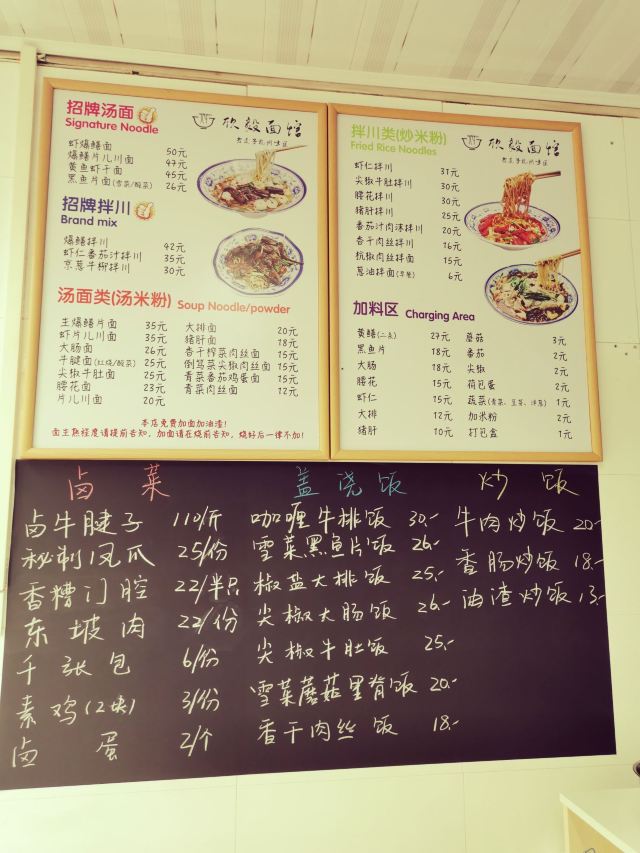 招牌汤面
Signature Noodle
虾爆鳝面 50元
爆鳝片儿川面 47元
黄鱼虾干面 45元
黑鱼片面(雪菜/酸菜) 26元
招牌拌川
Brand mix
爆鳝拌川 42元
虾仁番茄汁拌川 35元
京葱牛柳拌川 30元
汤面类(汤米粉) Soup Noodle/powder
生爆鳝片面 35元
虾片儿川面 35元
大肠面 26元
牛腱面(红烧/酸菜) 25元
尖椒牛肚面 25元
腰花面 23元
片儿川面 20元
大排面 20元
猪肝面 18元
香干榨菜肉丝面 15元
倒笃菜尖椒肉丝面 15元
青菜番茄鸡蛋面 15元
青菜肉丝面 12元
本店免费加面加油渣!
面生熟程度请提前告知，加面请在烧前告知，烧好后一律不加!
拌川类(炒米粉)
Fried Rice Noodles
面馆
虾仁拌川 31元
尖椒牛肚拌川 30元
腰花拌川 30元
猪肝拌川 25元
番茄汁肉沫拌川 20元
香干肉丝拌川 16元
杭椒肉丝拌面 15元
葱油拌面(早餐) 6元
加料区 Charging Area
黄鳝(二两) 27元
黑鱼片 18元
大肠 18元
腰花 15元
虾仁 15元
大排 12元
猪肝 10元
蘑菇 3元
番茄 2元
尖椒 2元
荷包蛋 2元
蔬菜(青菜、豆芽、洋葱) 1元
加米粉 2元
打包盒 1元
卤菜
卤牛腱子 110/斤
秘制凤爪 25/份
香糟门腔 22/半只
东坡肉 22/份
千张包 6/份
素鸡(2块) 3/份
卤蛋 2/个
盖浇饭
咖喱牛排饭 30.-
雪菜黑鱼片饭 26.-
椒盐大排饭 25.-
尖椒大肠饭 26.-
尖椒牛肚饭 25.-
雪菜蘑菇里脊饭 20.-
香干肉丝饭 18.-
炒饭
牛肉炒饭 20.-
香肠炒饭 18.-
油渣炒饭 13.-